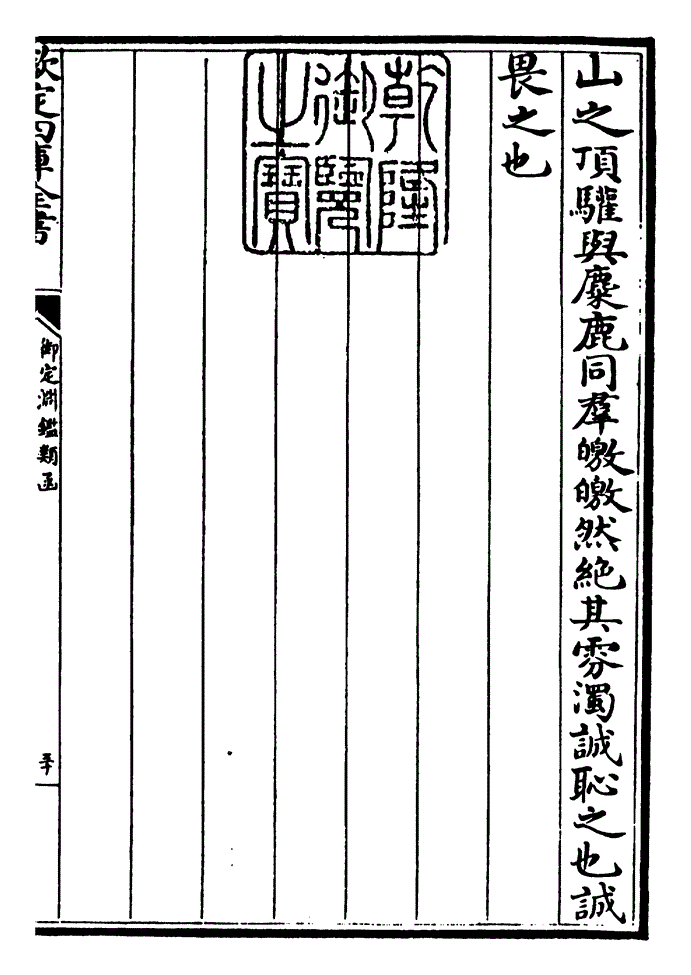 山之頂驩與麋鹿同羣皦皦然絶其雰濁誠恥之也誠
畏之也
乾隆
御覽
之寶
欽定四庫全書
御定淵鑑類函
五十